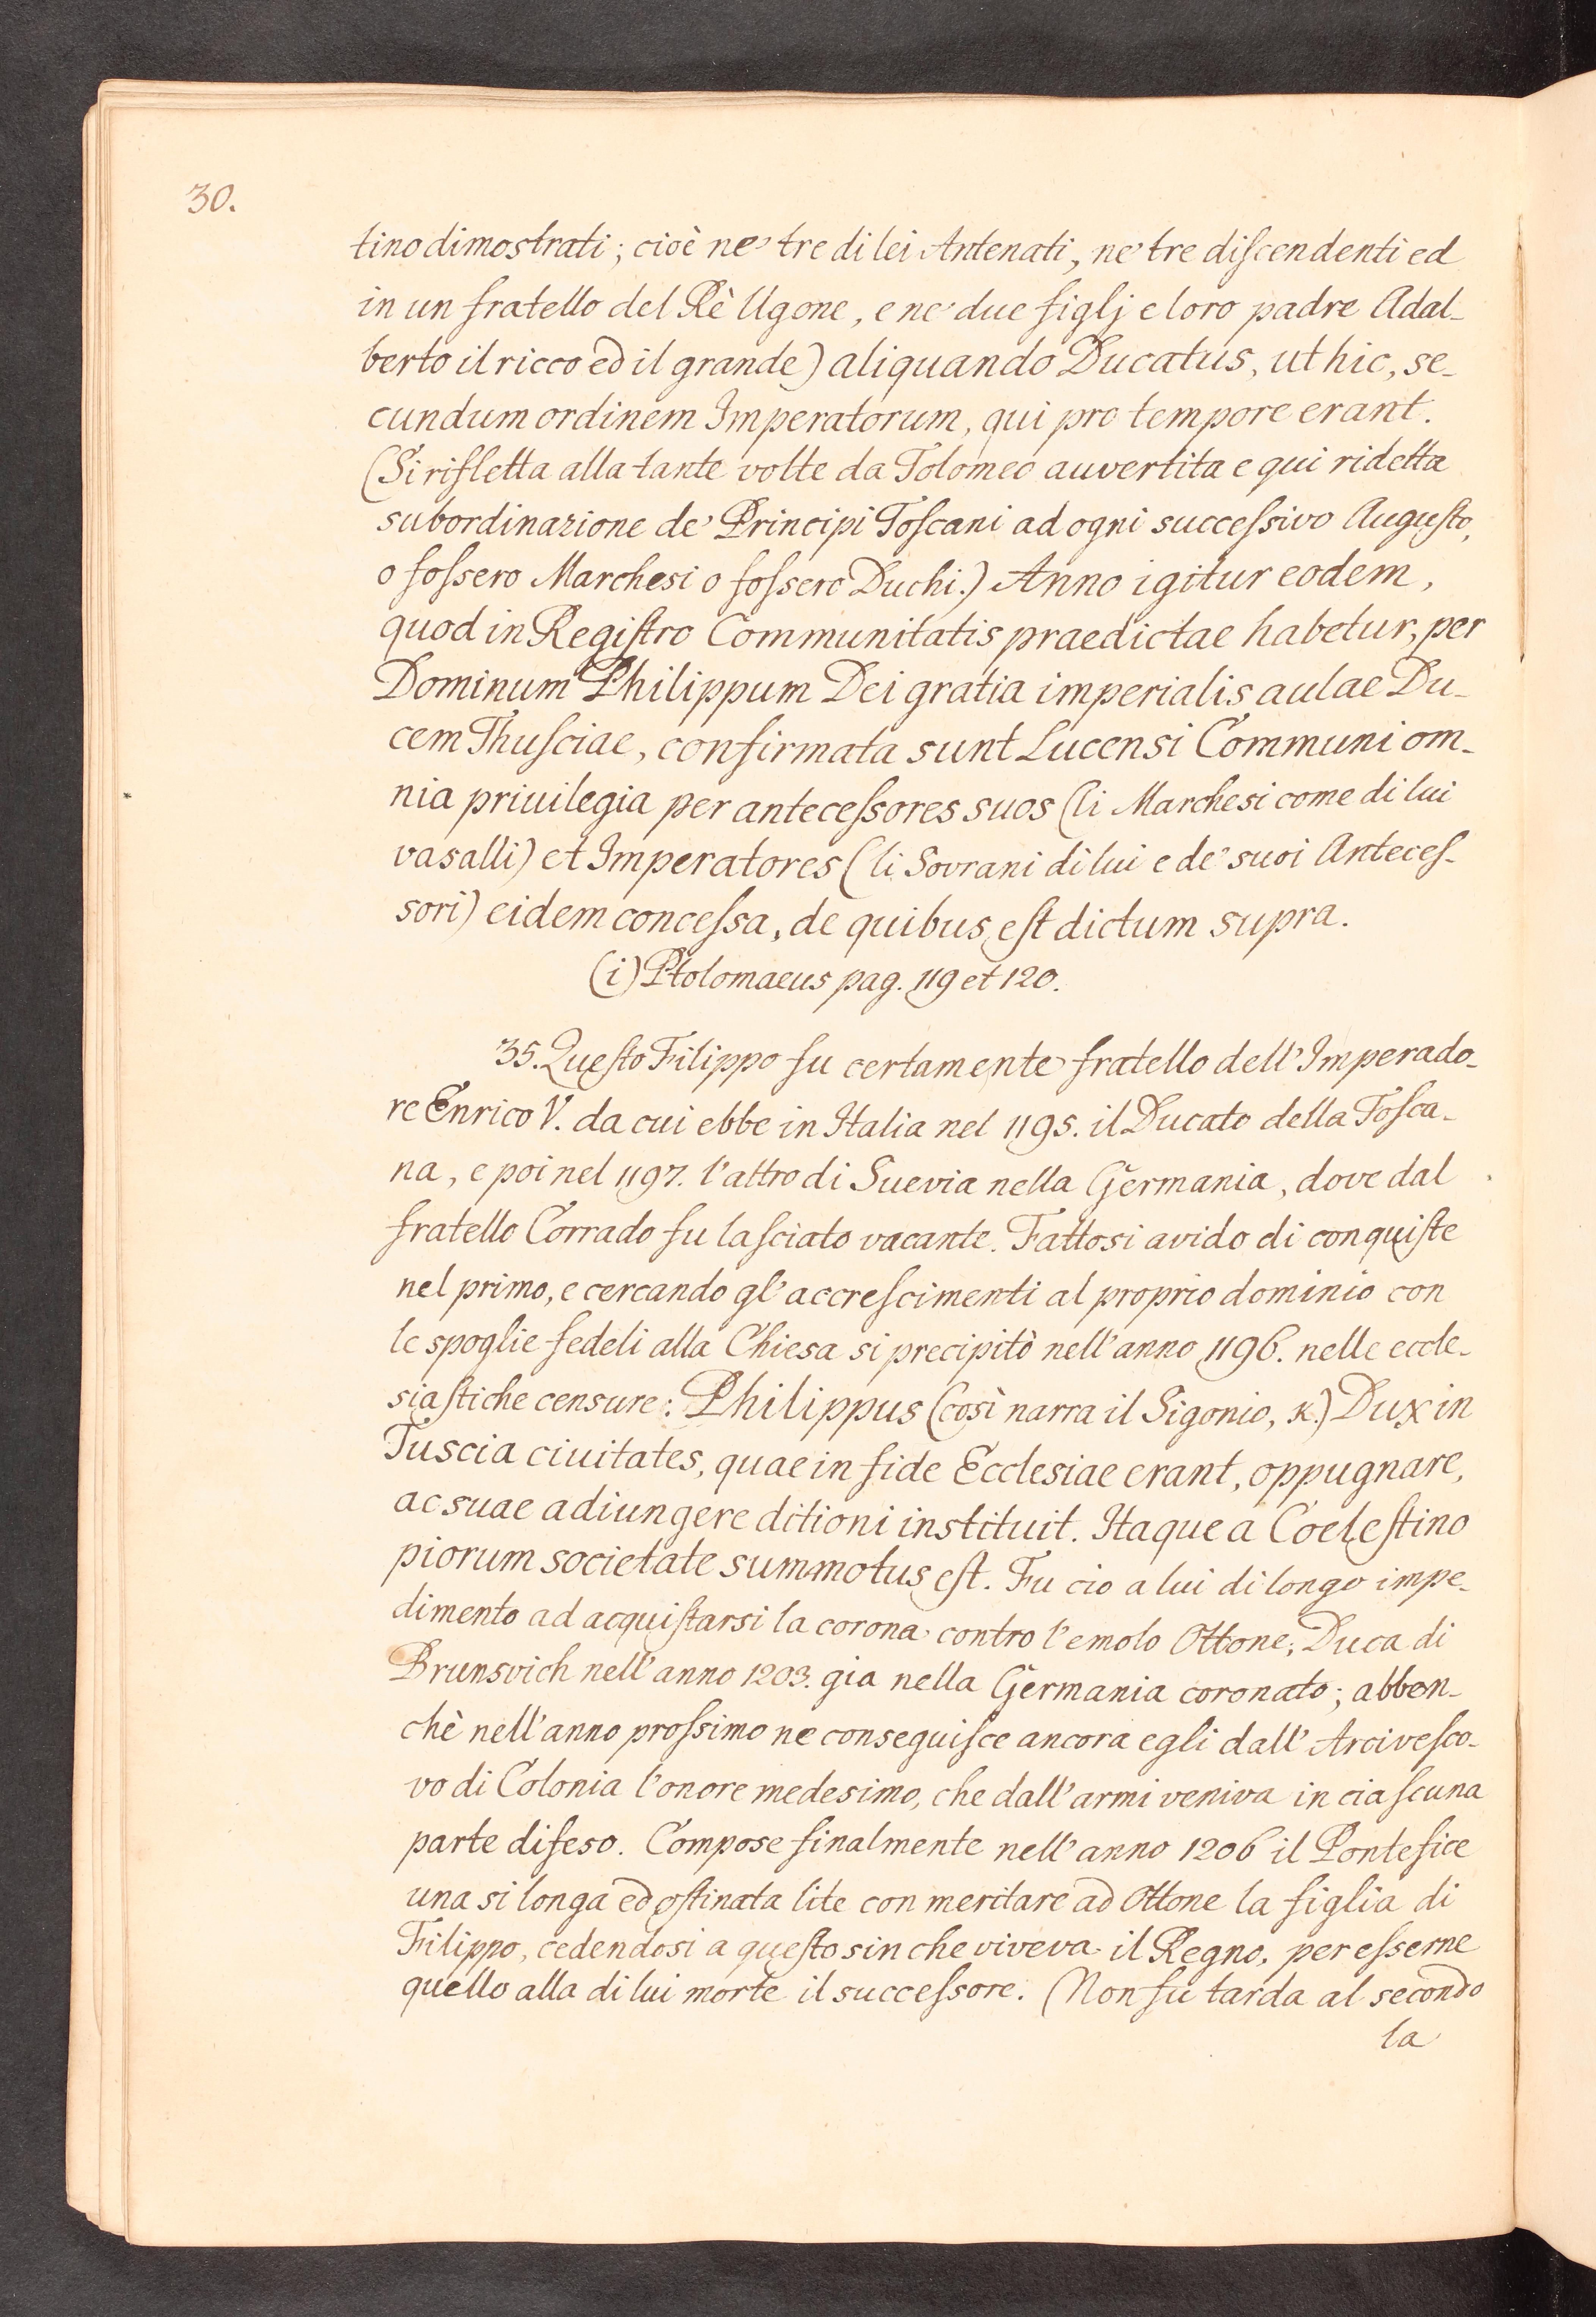 30.
tino dimostrati; cioè ne' tre di lei Antenati, ne' tre discendenti ed
in un fratello del Rè Ugone, e ne' due figlj e loro padre Adal-
berto il ricco ed il grande) aliquando Ducatus, ut hic, se-
cundum ordinem Imperatorum, qui pro tempore erant.
(Si rifletta alla tante volte da Tolomeo auvertita e qui ridetta
subordinazione de' Principi Toscani ad ogni successivo Augusto,
o fossero Marchesi o fossero Duchi.) Anno igitur eodem,
quod in Registro Communitatis praedictae habetur, per
Dominum Philippum Dei gratia imperialis aulae Du-
cem Thusciae, confirmata sunt Lucensi Communi om-
nia priuilegia per antecessores suos (li Marchesi come di lui
vasalli) et Imperatores (li Sovrani di lui e de' suoi Anteces-
sori) eidem concessa, de quibus est dictum supra.
(i) Ptolomaeus pag. 119 et 120.
35. Questo Filippo fu certamente fratello dell'Imperado-
re Enrico V. da cui ebbe in Italia nel 1195. il Ducato della Tosca-
na, e poi nel 1197. l'altro di Suevia nella Germania, dove dal
fratello Corrado fu lasciato vacante. Fattosi avido di conquiste
nel primo, e cercando gl'accrescimenti al proprio dominio con
le spoglie fedeli alla Chiesa si precipitò nell'anno 1196. nelle eccle-
siastiche censure: Philippus (così narra il Sigonio, k.) Dux in
Tuscia ciuitates, quae in fide Ecclesiae erant, oppugnare,
ac suae adiungere ditioni instituit. Itaque a Coelestino
piorum societate summotus est. Fu cio a lui di longo impe-
dimento ad acquistarsi la corona contro l'emolo Ottone, Duca di
Brunsvich nell'anno 1203. gia nella Germania coronato; abben-
chè nell'anno prossimo ne conseguisce ancora egli dall'Arcivesco-
vo di Colonia l'onore medesimo, che dall'armi veniva in ciascuna
parte difeso. Compose finalmente nell'anno 1206 il Pontefice
una si longa ed ostinata lite con meritare ad Ottone la figlia di
Filippo, cedendosi a questo sin che viveva il Regno, per esserne
quello alla di lui morte il successore. Non fu tarda al secondo
la